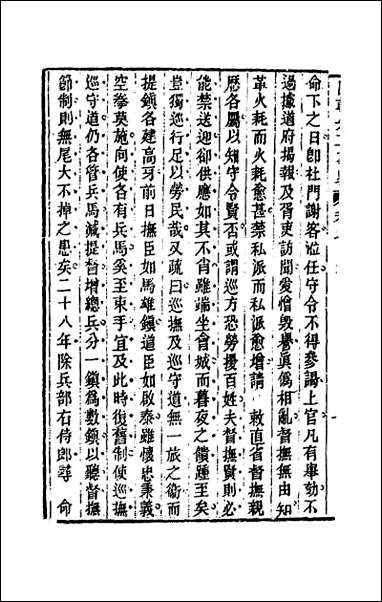 命下之日卽杜門謝客涖任守令不得參謁上官凡有舉劾不
過據道府揭報及胥吏訪聞愛憎毀譽眞僞相亂督撫無由知
革火耗而火耗愈甚禁私派而私派愈增請 敕直省督撫親
歷各屬以知守令賢否或謂巡方恐勞擾百姓夫督撫賢則必
能禁送迎卻供應如其不肖雖端坐會城而暮夜之饋踵至矣
豈獨巡行足以勞民哉又疏曰巡撫及巡守道無一旅之衞而
提鎮各建高牙前日撫臣如馬雄鎮道臣如啟泰雖懷忠秉義
空拳莫施向使各有兵馬奚至束手宜及此時復舊制使巡撫
巡守道仍各管兵馬減提督增總兵分一鎮爲數鎮以聽督撫
節制則無尾大不掉之患矣二十八年除兵部右侍郎尋 命